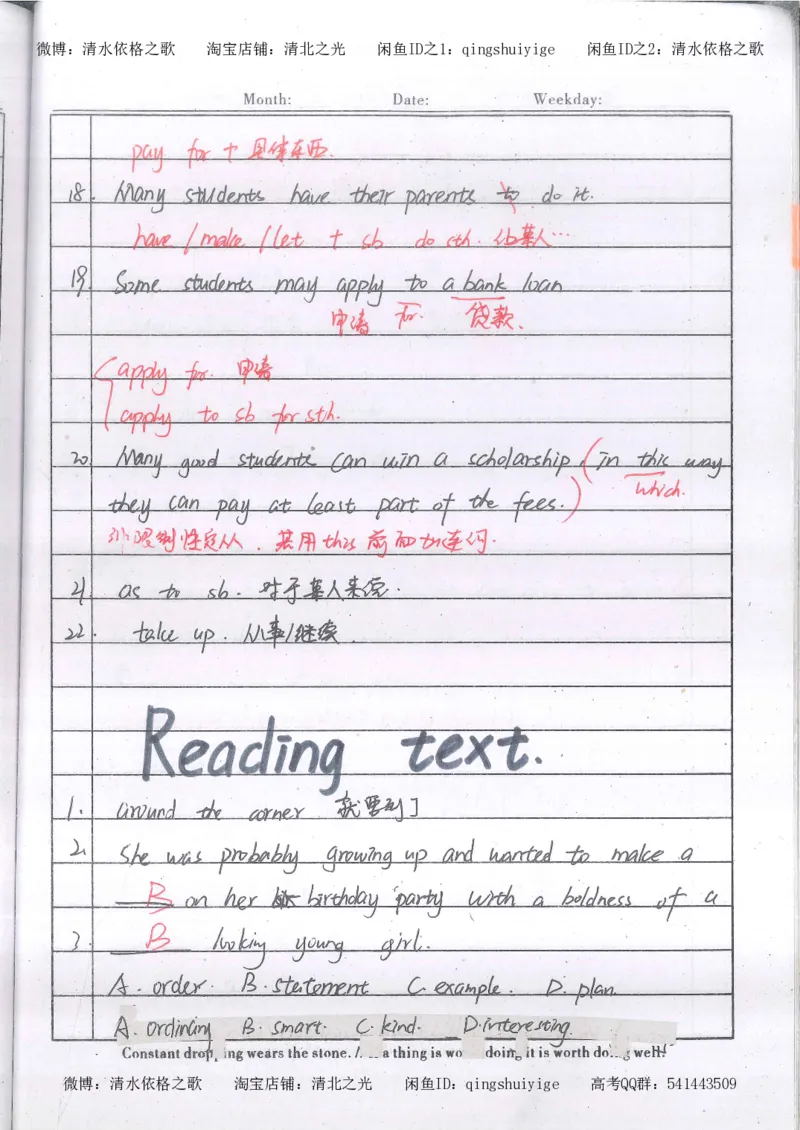 微博：清水依格之歌 淘宝店铺：清北之光 闲鱼ID之1：qingshuiyige 闲鱼ID之2：清水依格之歌
Month: Date: Weekday:
pay for + 具体东西.
18. Many students have their parents to do it.
have / make / let + sb do sth. 让某人…
19. Some students may apply to a bank loan
申请 for. 贷款.
apply for. 申请
apply to sb for sth.
20. Many good students can win a scholarship (in this way
which.
they can pay at least part of the fees.)
非限制性定从. 若用this 前面加连词.
21. as to sb. 对于某人来说.
22. take up. 从事/继续.
Reading text.
1. around the corner 就要到了
2. She was probably growing up and wanted to make a
B on her birthday party with a boldness of a
3. B looking young girl.
A. order. B. statement C. example. D. plan.
A. ordining B. smart. C. kind. D. interesting.
Constant drop ing wears the stone. a thing is wo doing it is worth do g well!
微博：清水依格之歌 淘宝店铺：清北之光 闲鱼ID：qingshuiyige 高考QQ群：541443509